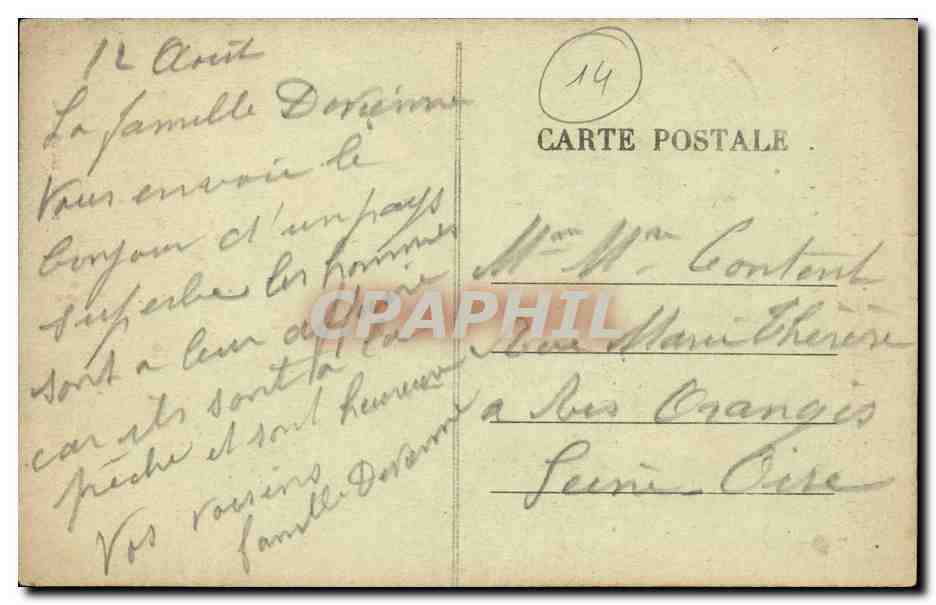 12 Août
La famille Devienne
Vous envoie le
bonjour d'un pays
superbe les hommes
sont a leur affaire
car ils sont a la
pêche et sont heureux
Vos voisins
famille Devienne
14
CARTE POSTALE
Mme Content
Rue Marie Thérèse
a Ris Orangis
Seine Oise
CPAPHIL